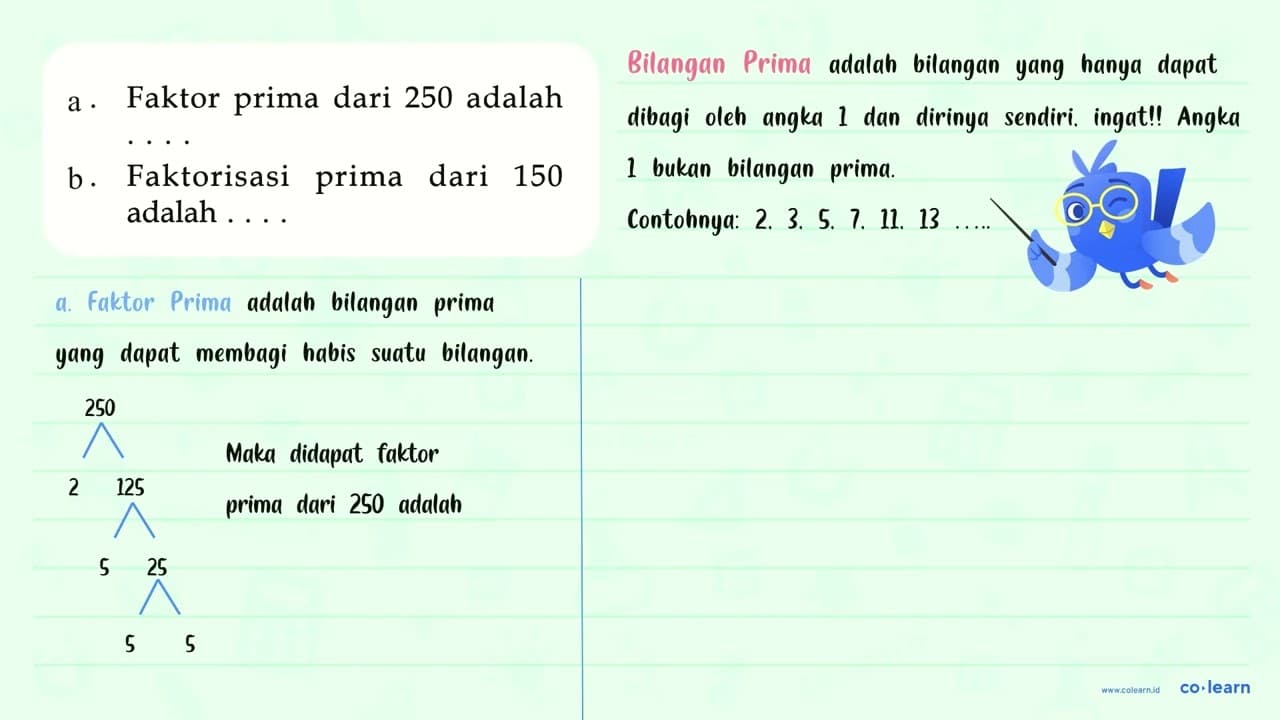 a. Faktor prima dari 250 adalah
. . . .
b. Faktorisasi prima dari 150
adalah . . . .
Bilangan Prima adalah bilangan yang hanya dapat
dibagi oleh angka 1 dan dirinya sendiri. ingat!! Angka
1 bukan bilangan prima.
Contohnya: 2, 3, 5, 7, 11, 13 .....
a. Faktor Prima adalah bilangan prima
yang dapat membagi habis suatu bilangan.
250
2 125
5 25
5 5
Maka didapat faktor
prima dari 250 adalah
www.colearn.id co·learn